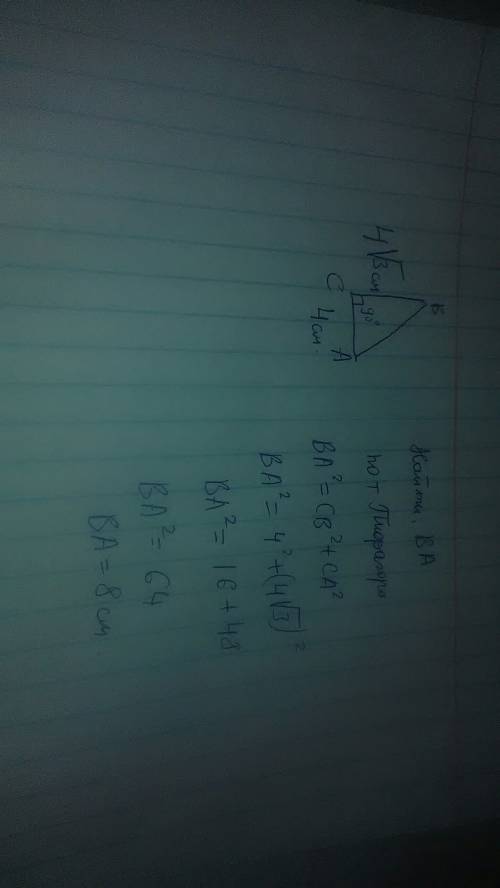 Б
4√3 см
90°
C
4 см.
A
Найти: BA
по т Пифагора
BA² = CB² + CA²
BA² = 4² + (4√3)²
BA² = 16 + 48
BA² = 64
BA = 8 см.